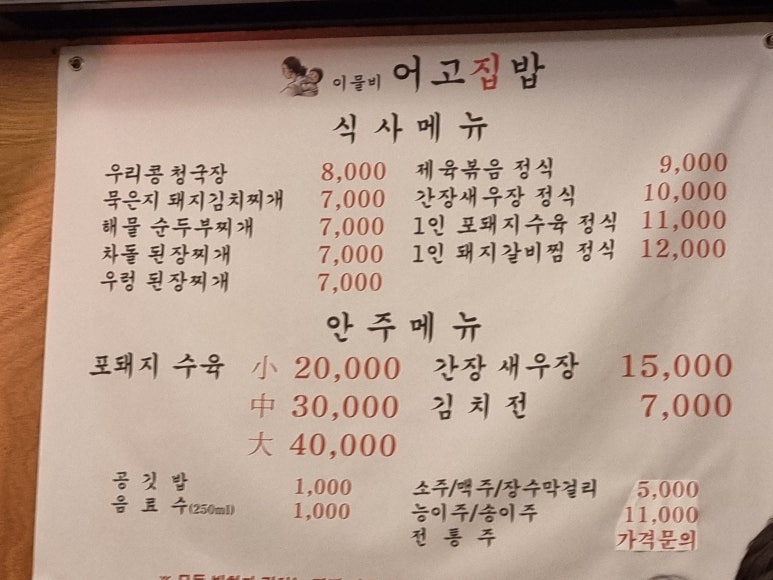 이물비 어고집밥
식사메뉴
우리콩 청국장 8,000
묵은지 돼지김치찌개 7,000
해물 순두부찌개 7,000
차돌 된장찌개 7,000
우렁 된장찌개 7,000
제육볶음 정식 9,000
간장새우장 정식 10,000
1인 포돼지수육 정식 11,000
1인 돼지갈비찜 정식 12,000
안주메뉴
포돼지 수육 小 20,000
中 30,000
大 40,000
간장 새우장 15,000
김치전 7,000
공깃밥 1,000
음료수(250ml) 1,000
소주/맥주/장수막걸리 5,000
능이주/송이주 11,000
전통주 가격문의